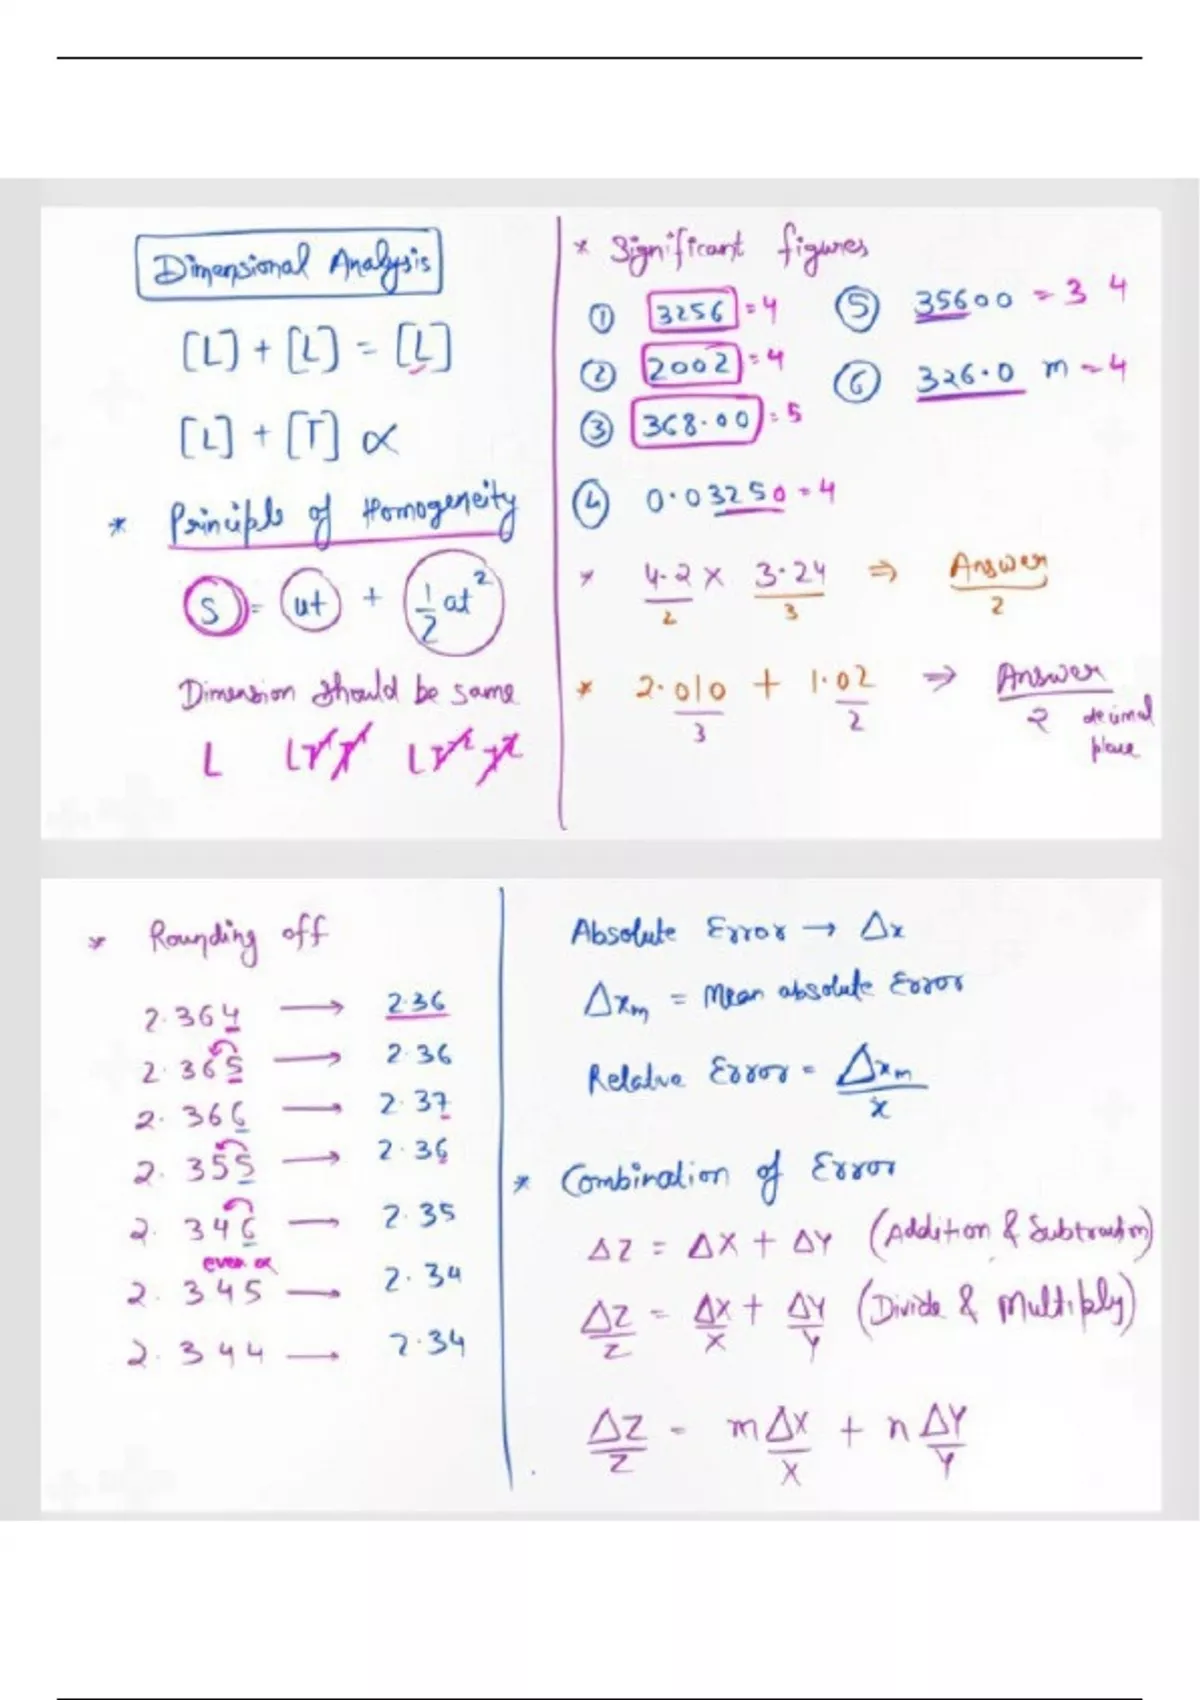 Dimensional Analysis
[L] + [L] = [L]
[L] + [T] ∝
* Principle of Homogeneity
S = ut + 1/2 at²
Dimension should be same
L LT⁻¹T LT⁻²T²
* Significant figures
① 3256 = 4
② 2002 = 4
③ 368.00 = 5
④ 0.03250 = 4
⑤ 35600 = 3 4
⑥ 326.0 m = 4
* 4.2 × 3.24 ⇒ Answer
2 3 2
* 2.010 + 1.02 ⇒ Answer
3 2 2 decimal
place
* Rounding off
2.364 → 2.36
2.365 → 2.36
2.366 → 2.37
2.355 → 2.36
2.346 → 2.35
even
2.345 → 2.34
2.344 → 2.34
Absolute Error → Δx
Δxm = Mean absolute Error
Relative Error = Δxm/x
* Combination of Error
ΔZ = ΔX + ΔY (Addition & Subtraction)
ΔZ/Z = ΔX/X + ΔY/Y (Divide & Multiply)
ΔZ/Z = mΔX/X + nΔY/Y